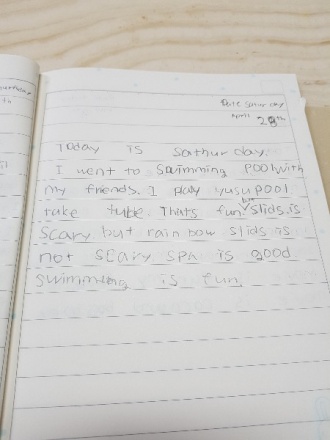 Date Saturday
April 28th
Today is Sathurday.
I went to Swimming Pool with
my friends. I play yusupool
take tube. Thats fun. but slids is
scary but rainbow slids is
not scary spa is good
swimming is fun.